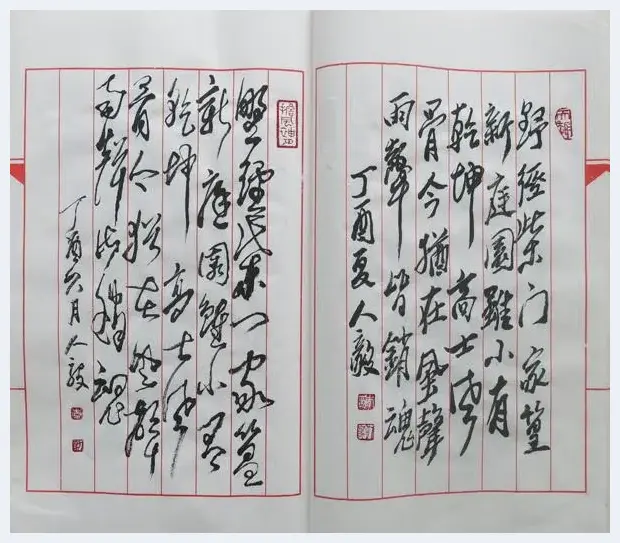 野徑柴门家篁
新庭園雖小有
乾坤高士
骨今猶在風聲
雨聲皆銷魂
丁酉夏人毅
野徑柴门家篁
新庭園雖小有
乾坤高士
骨今猶在風聲
雨聲皆銷魂
丁酉六月人毅